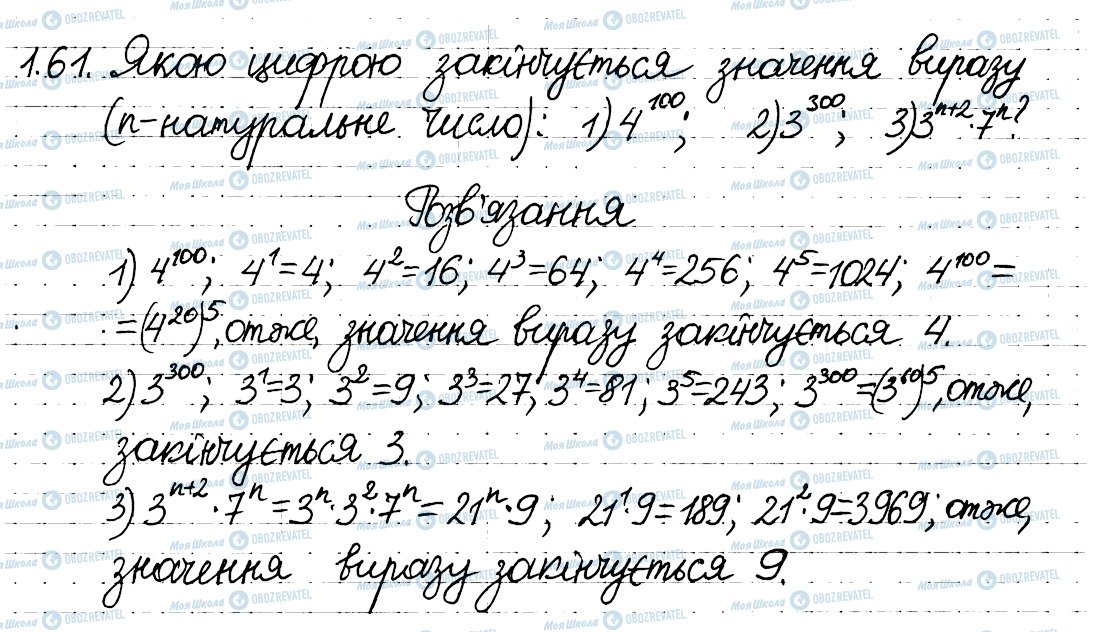 1.61. Якою цифрою закінчується значення виразу
(n-натуральне число): 1) 4^100; 2) 3^300; 3) 3^(n+2)·7^n?
Розв'язання
1) 4^100; 4^1=4; 4^2=16; 4^3=64; 4^4=256; 4^5=1024; 4^100=
=(4^20)^5, отже, значення виразу закінчується 4.
2) 3^300; 3^1=3; 3^2=9; 3^3=27; 3^4=81; 3^5=243; 3^300=(3^60)^5, отже,
закінчується 3.
3) 3^(n+2)·7^n=3^n·3^2·7^n=21^n·9; 21^1·9=189; 21^2·9=3969; отже,
значення виразу закінчується 9.
Моя Школа OBOZREVATEL